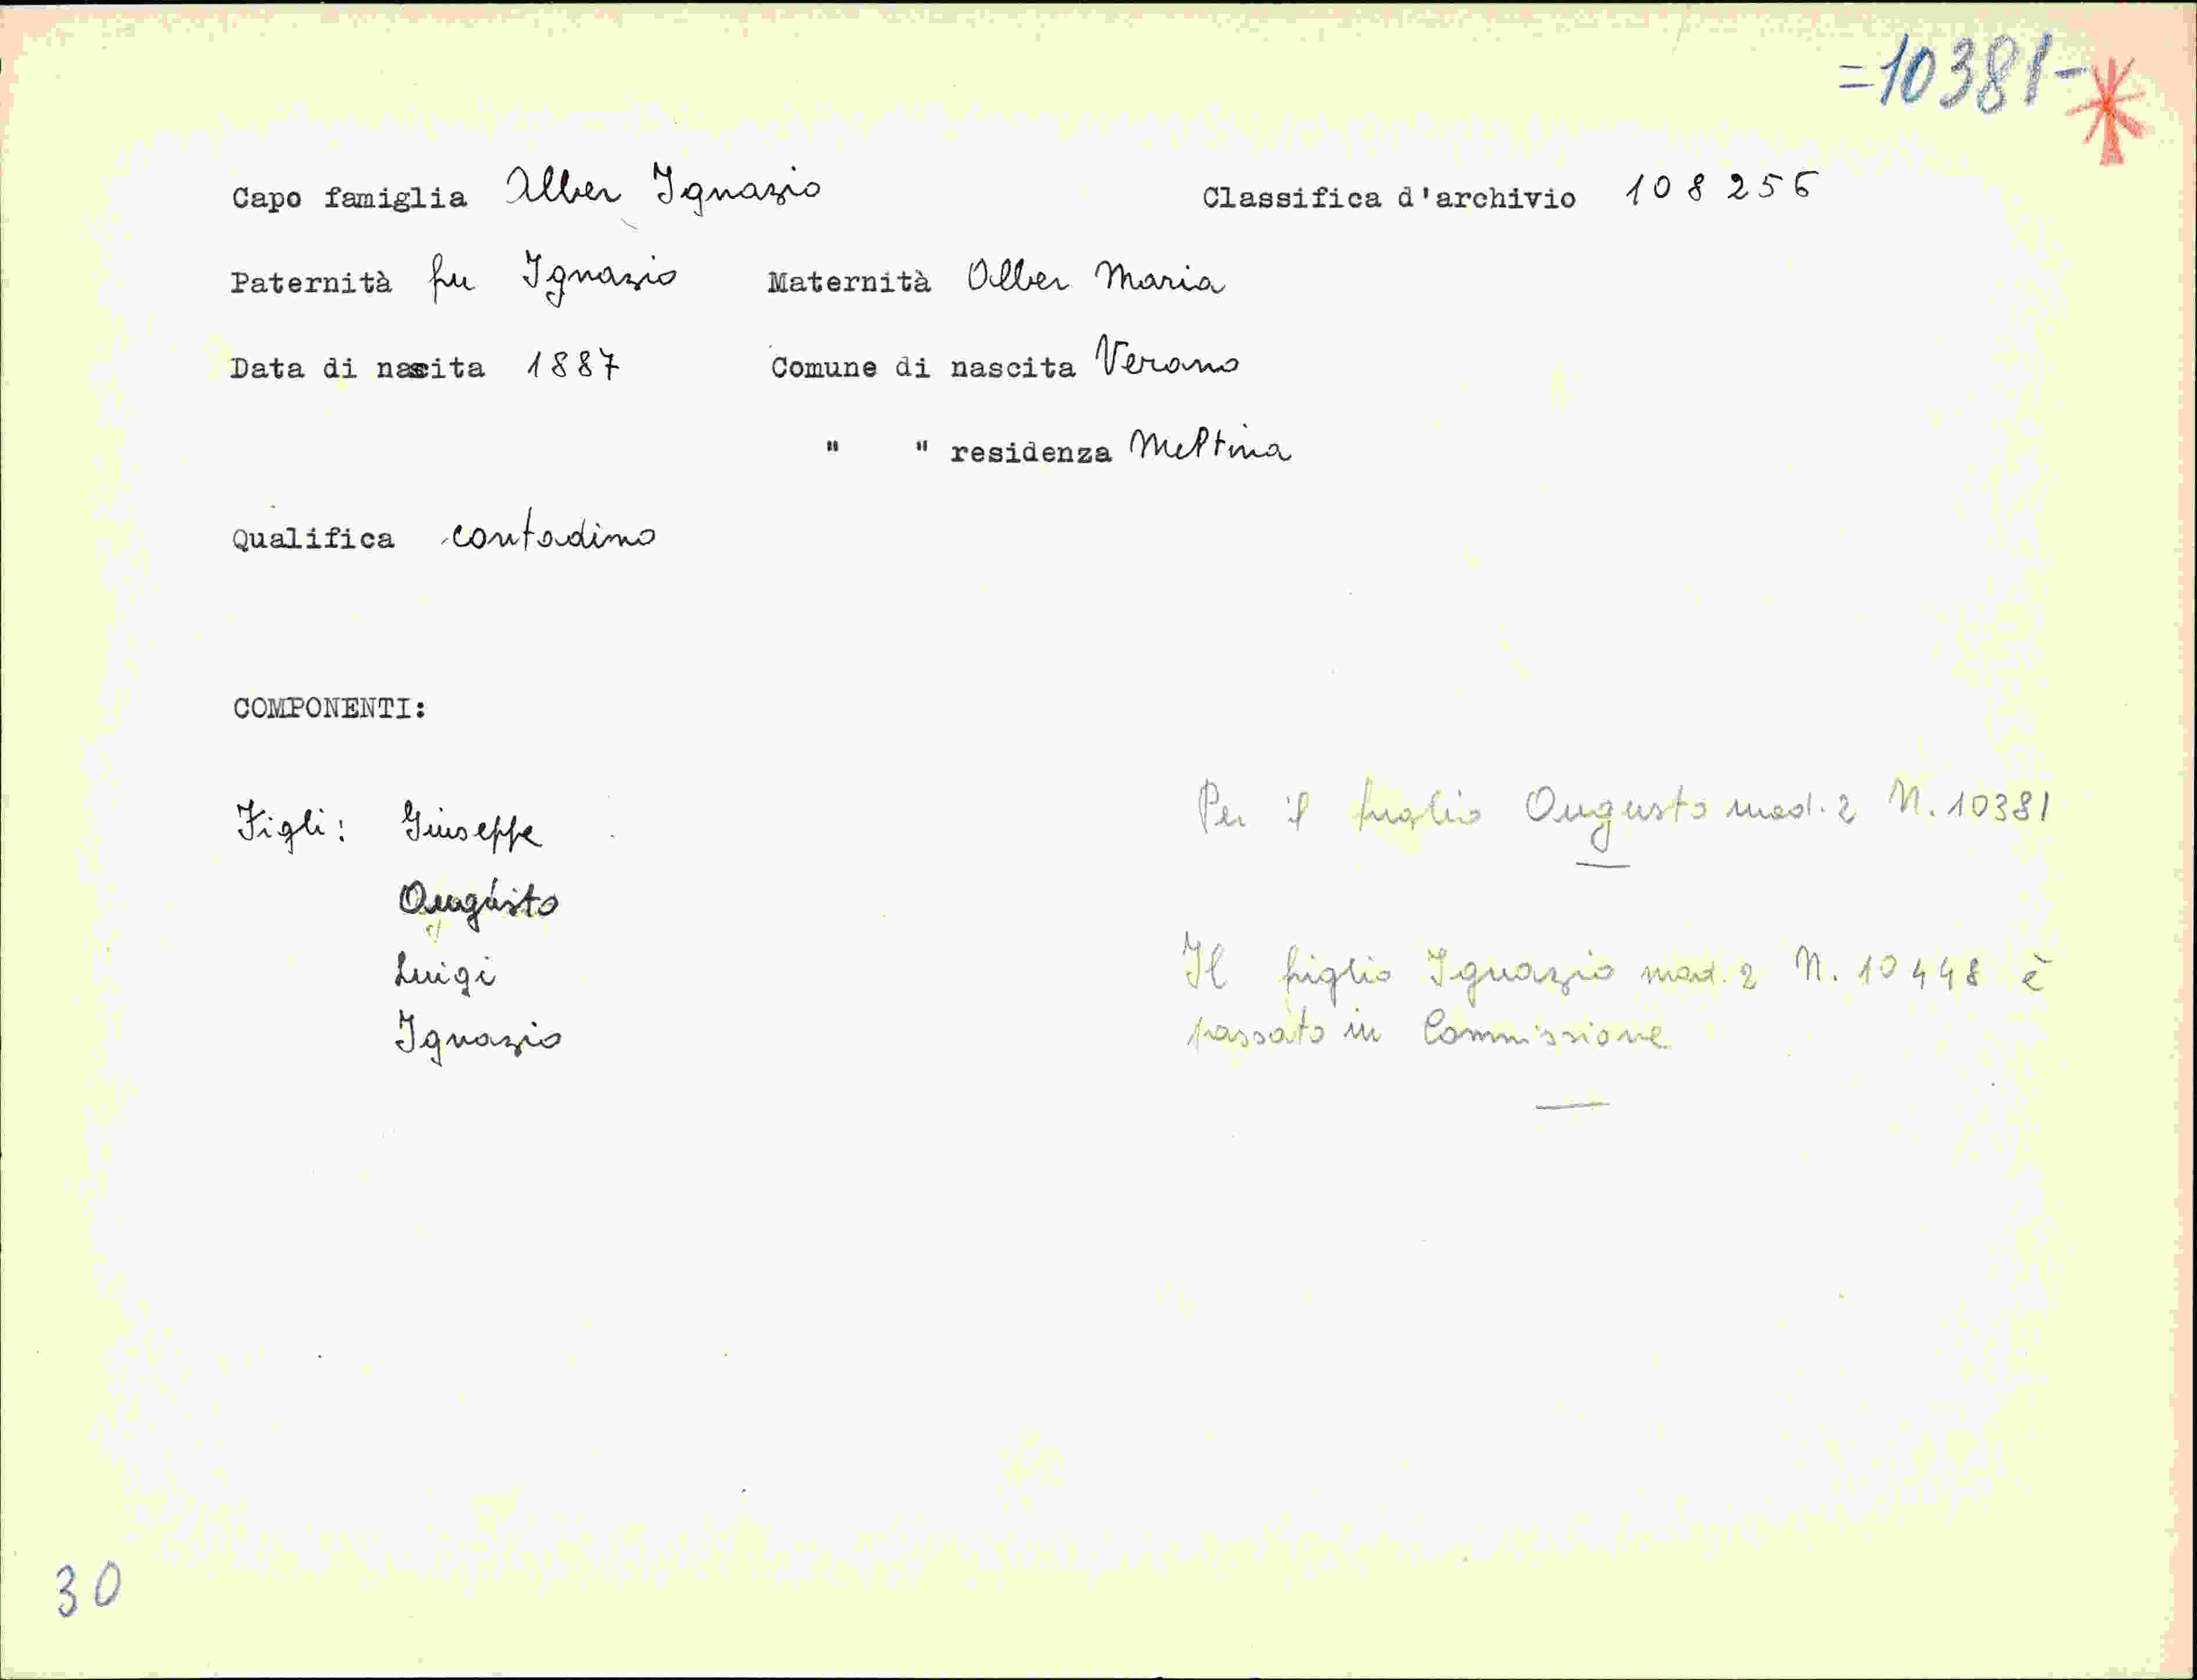 =10381-
Capo famiglia Alber Ignazio Classifica d'archivio 108256
Paternità fu Ignazio Maternità Alber Maria
Data di nascita 1887 Comune di nascita Verano
" " residenza Meltina
Qualifica contadino
COMPONENTI:
Figli: Giuseppe
Per il figlio Augusto mod. 2 N. 10381
Augusto
Luigi
Il figlio Ignazio mod. 2 N. 10448 è
Ignazio
passato in Commissione
30